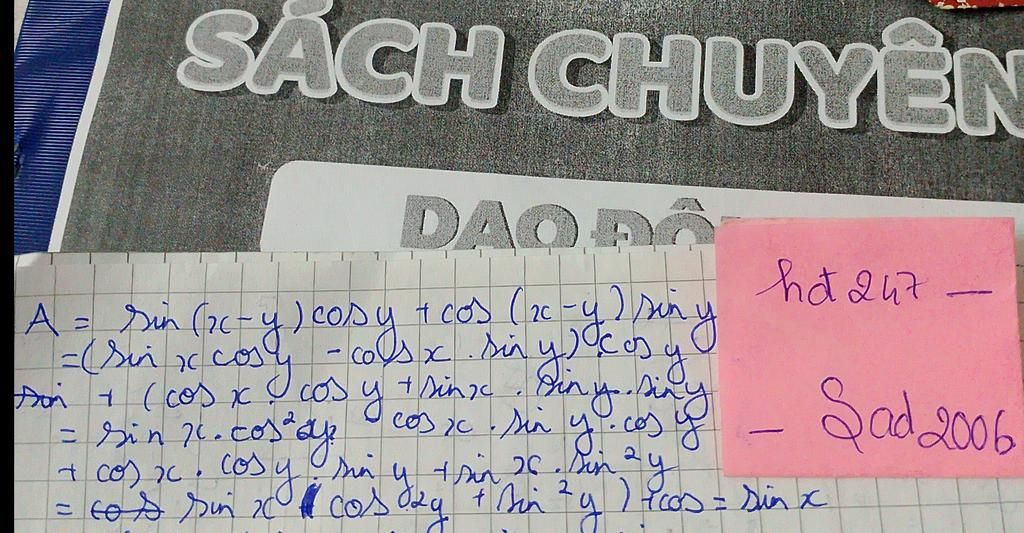 SÁCH CHUYÊN
DAO ĐỘ
hdt 247 —
— Sad 2006
A = sin (x-y) cosy + cos (x-y) sin y
= (sin x cos y - cos x . sin y) cos y
+ (cos x cos y + sin x . sin y . sin y
= sin x . cos²y cos x . sin y . cos y
+ cos x . cos y sin y + sin x . sin²y
= sin x ( cos²y + sin²y ) + cos = sin x